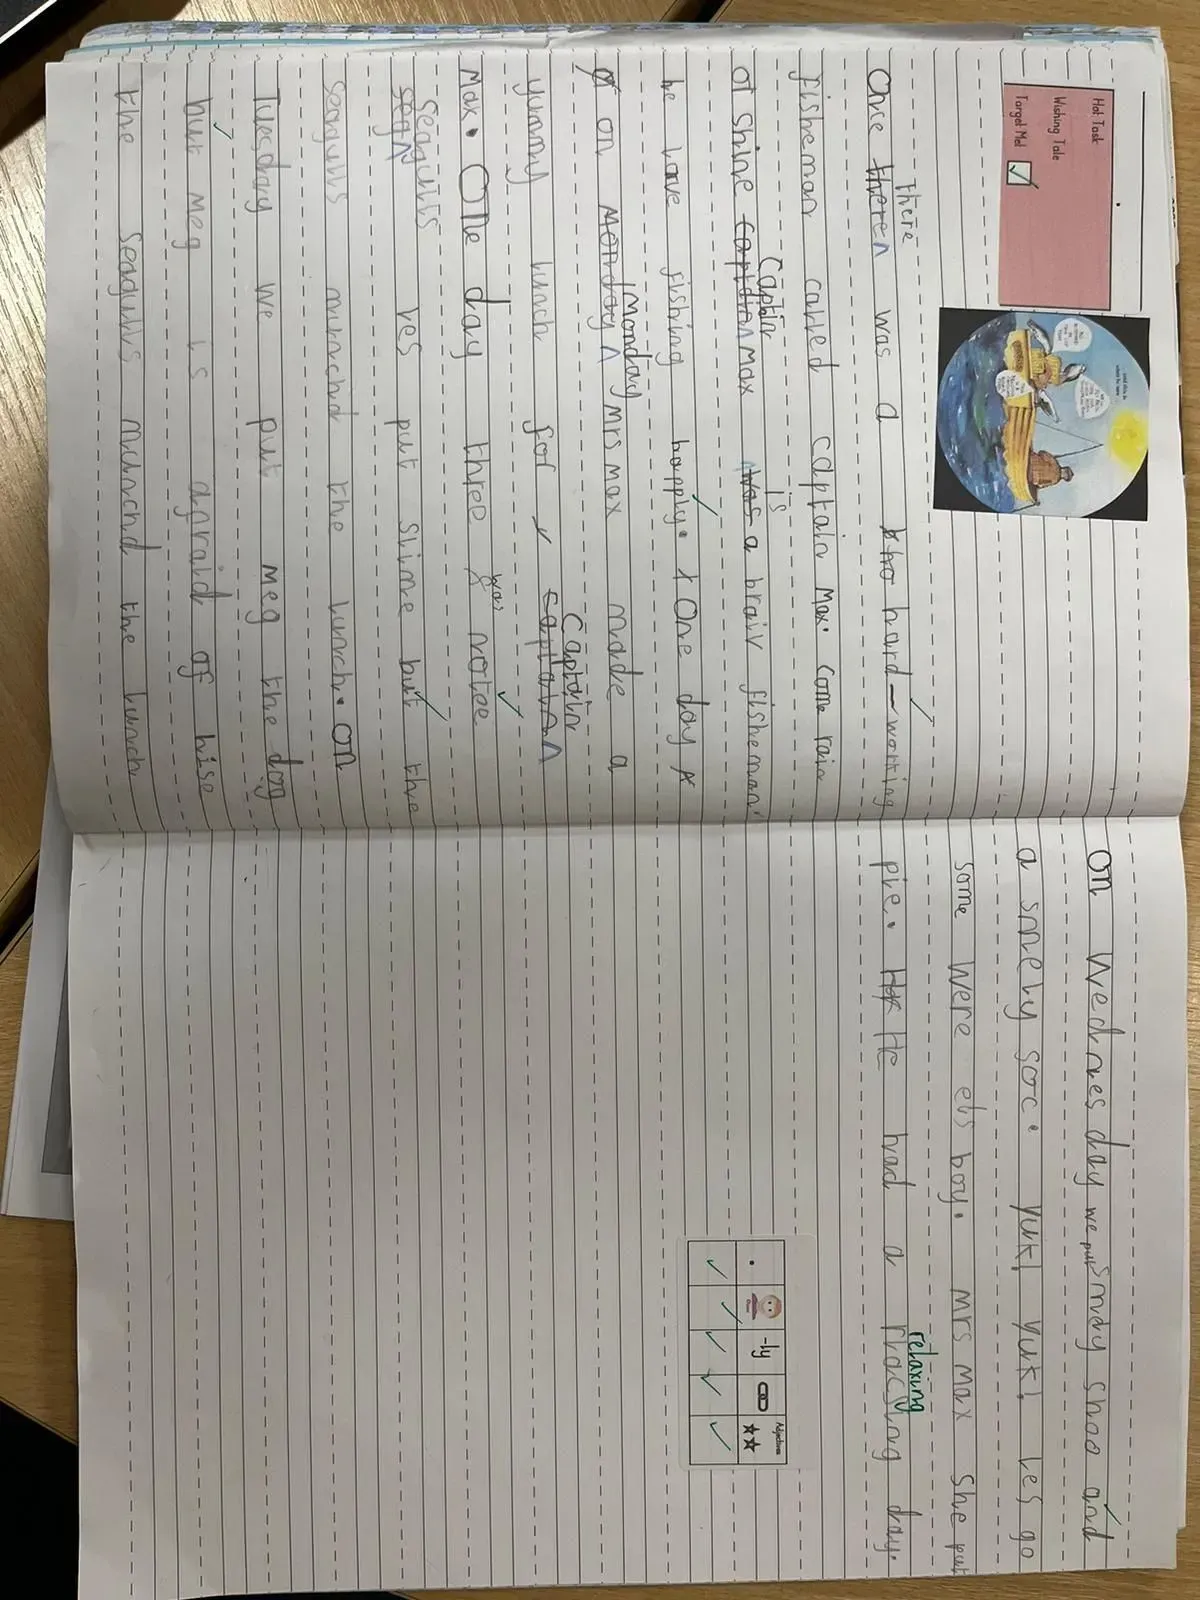 Hot Task
Wishing Tale
Target Met
there
Once there was a hard-working
fisheman called captain Max. come rain
Captin is
or shine captdian Max was a braiv fisheman
he love fishing happly. One day
Monday
on Monday Mrs max made a
Captain
yummy lunch for captain
was
Max. One day three notee
seagulls
seg les put slime but the
seagulls munchd the lunch. on
Tuesday we put meg the dog
but meg is afraid of hise
the seagulls munchd the lunch
on Wednesday we put Smdy shoo and
a smely soc. Yuk! Yuk! les go
some were els boy. Mrs Max she put
relaxing
pie. He had a rlacsing day.
-ly
Adjectives